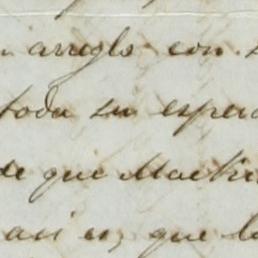 arreglo con
toda su espera
de que Ma
asi es, que l